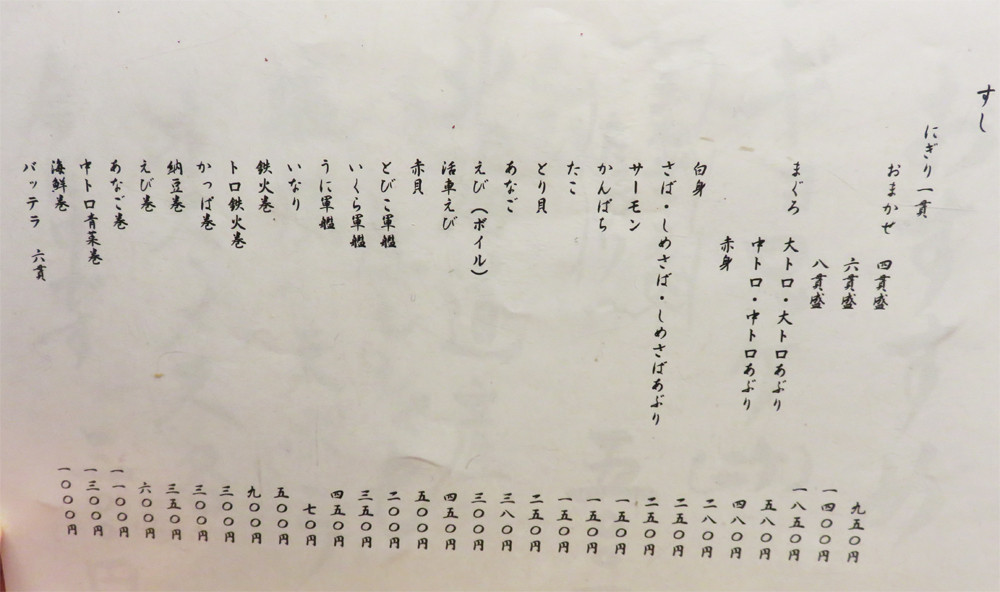 すし
にぎり一貫
おまかせ 四貫盛 九五〇円
六貫盛 一四〇〇円
八貫盛 一八五〇円
まぐろ 大トロ・大トロあぶり 五八〇円
中トロ・中トロあぶり 四八〇円
赤身 二八〇円
白身 二五〇円
さば・しめさば・しめさばあぶり 二五〇円
サーモン 一五〇円
かんぱち 一五〇円
たこ 一五〇円
とり貝 二五〇円
あなご 三八〇円
えび（ボイル） 三〇〇円
活車えび 四五〇円
赤貝 五〇〇円
とびこ軍艦 二〇〇円
いくら軍艦 三五〇円
うに軍艦 四五〇円
いなり 七〇円
鉄火巻 五〇〇円
トロ鉄火巻 九〇〇円
かっぱ巻 三〇〇円
納豆巻 三〇〇円
えび巻 三五〇円
あなご巻 六〇〇円
中トロ青菜巻 一一〇〇円
海鮮巻 一三〇〇円
バッテラ 六貫 一〇〇〇円